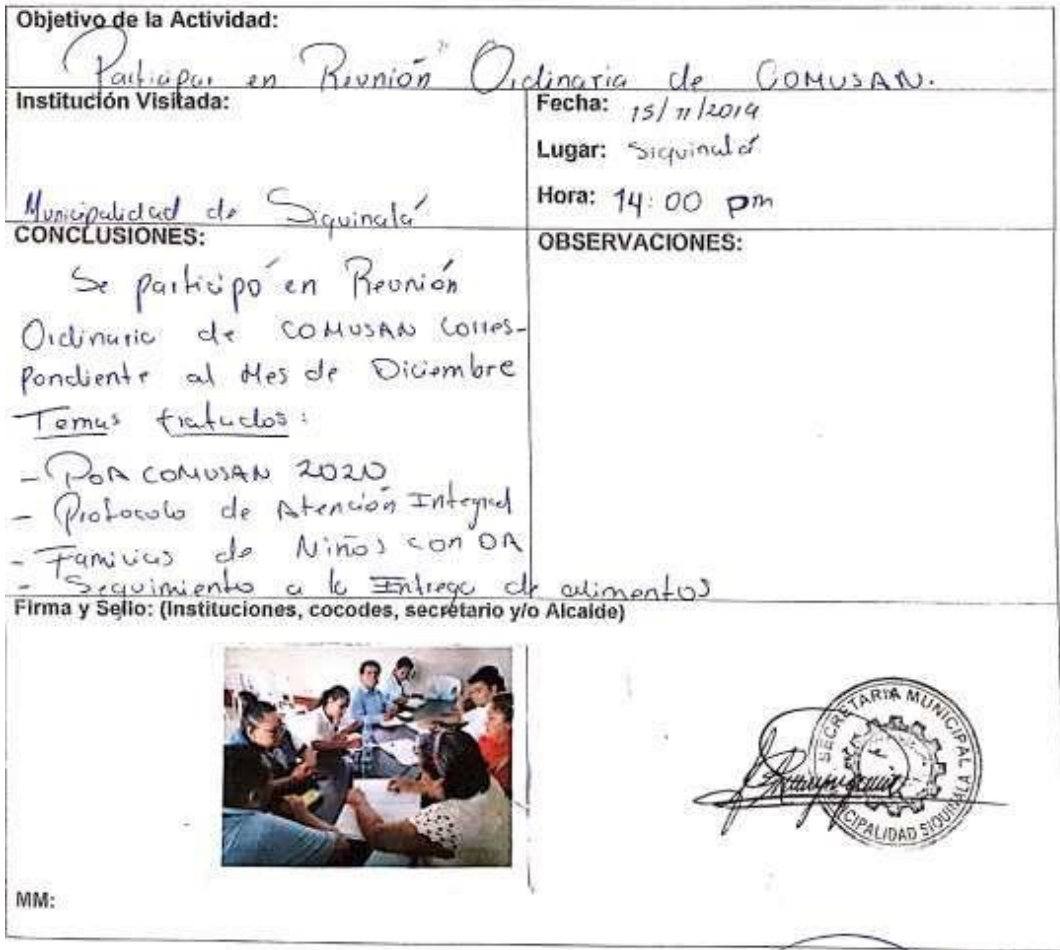 Objetivo de la Actividad:
Participar en Reunión Ordinaria de COMUSAN.
Institución Visitada:
Municipalidad de Siquinalá
Fecha: 15/11/2019
Lugar: Siquinalá
Hora: 14:00 pm
CONCLUSIONES:
Se participó en Reunión
Ordinaria de COMUSAN Corres-
pondiente al Mes de Diciembre
Temas tratados:
- POA COMUSAN 2020
- Protocolo de Atención Integral
- Familias de Niños con DA
- Seguimiento a la Entrega de alimentos
OBSERVACIONES:
Firma y Sello: (Instituciones, cocodes, secretario y/o Alcalde)
SECRETARIA MUNICIPAL
SIQUINALA
MM: